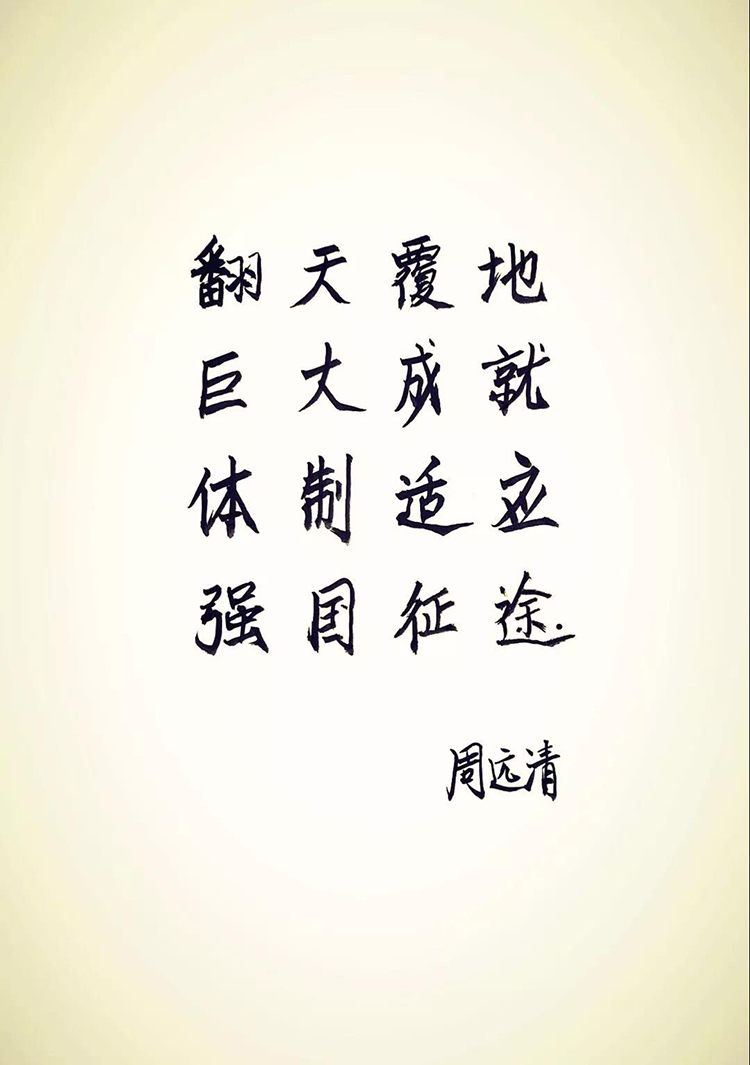 翻天覆地
巨大成就
体制适应
强国征途.
周远清